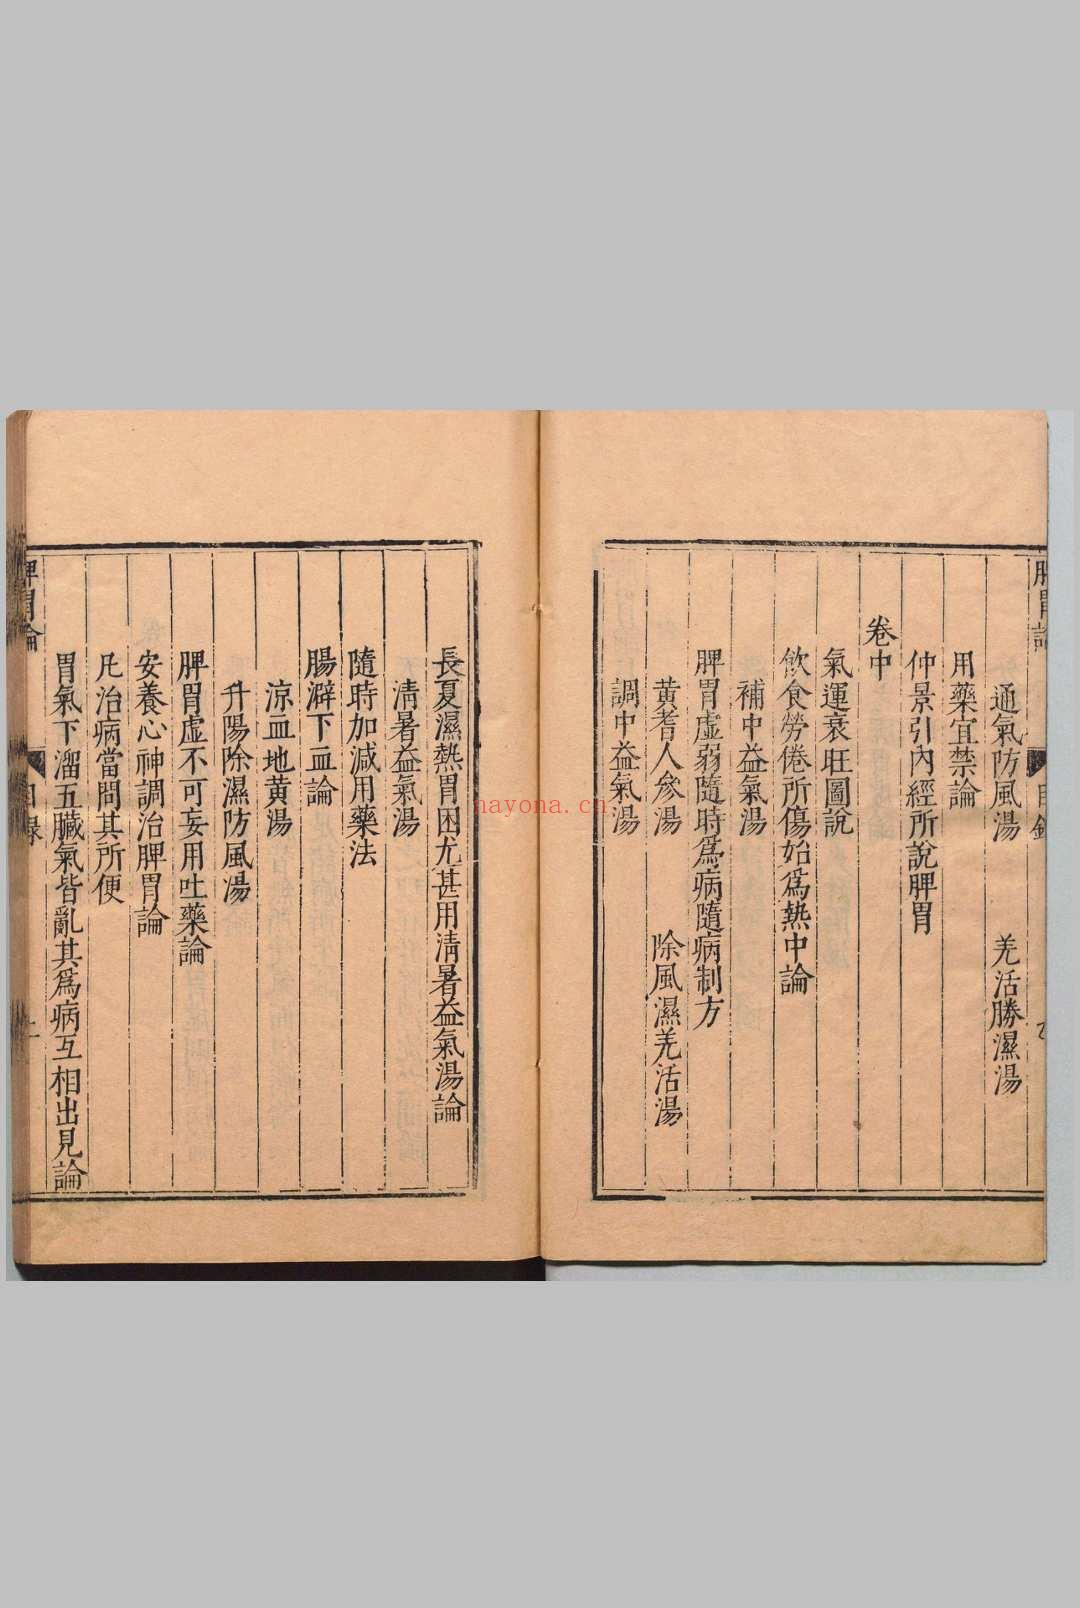 通氣防風湯　羌活勝濕湯
用藥宜禁論
仲景引內經所說脾胃
卷中
氣運衰旺圖說
飲食勞倦所傷始爲熱中論
補中益氣湯
脾胃虛弱隨時爲病隨病制方
黃耆人參湯　除風濕羌活湯
調中益氣湯
長夏濕熱胃困尤甚用清暑益氣湯論
清暑益氣湯
隨時加減用藥法
腸澼下血論
涼血地黃湯
升陽除濕防風湯
脾胃虛不可妄用吐藥論
安養心神調治脾胃論
凡治病當問其所便
胃氣下溜五臟氣皆亂其爲病互相出見論
脾胃論　目錄
nayona.cn